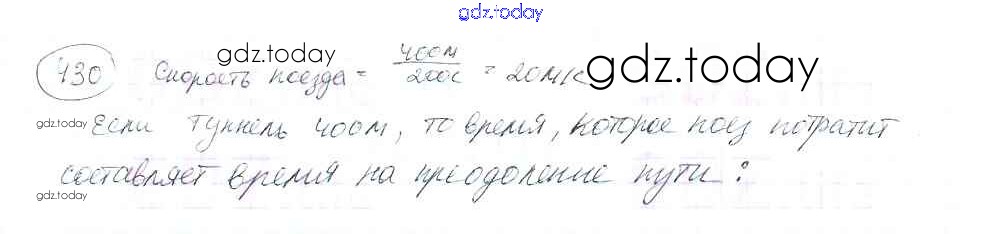 gdz.today
430 Скорость поезда = 400м / 200с = 20м/с
gdz.today
gdz.today
gdz.today Если туннель 400м, то время, которое поез потратит
составляет время на преодоление пути:
gdz.today